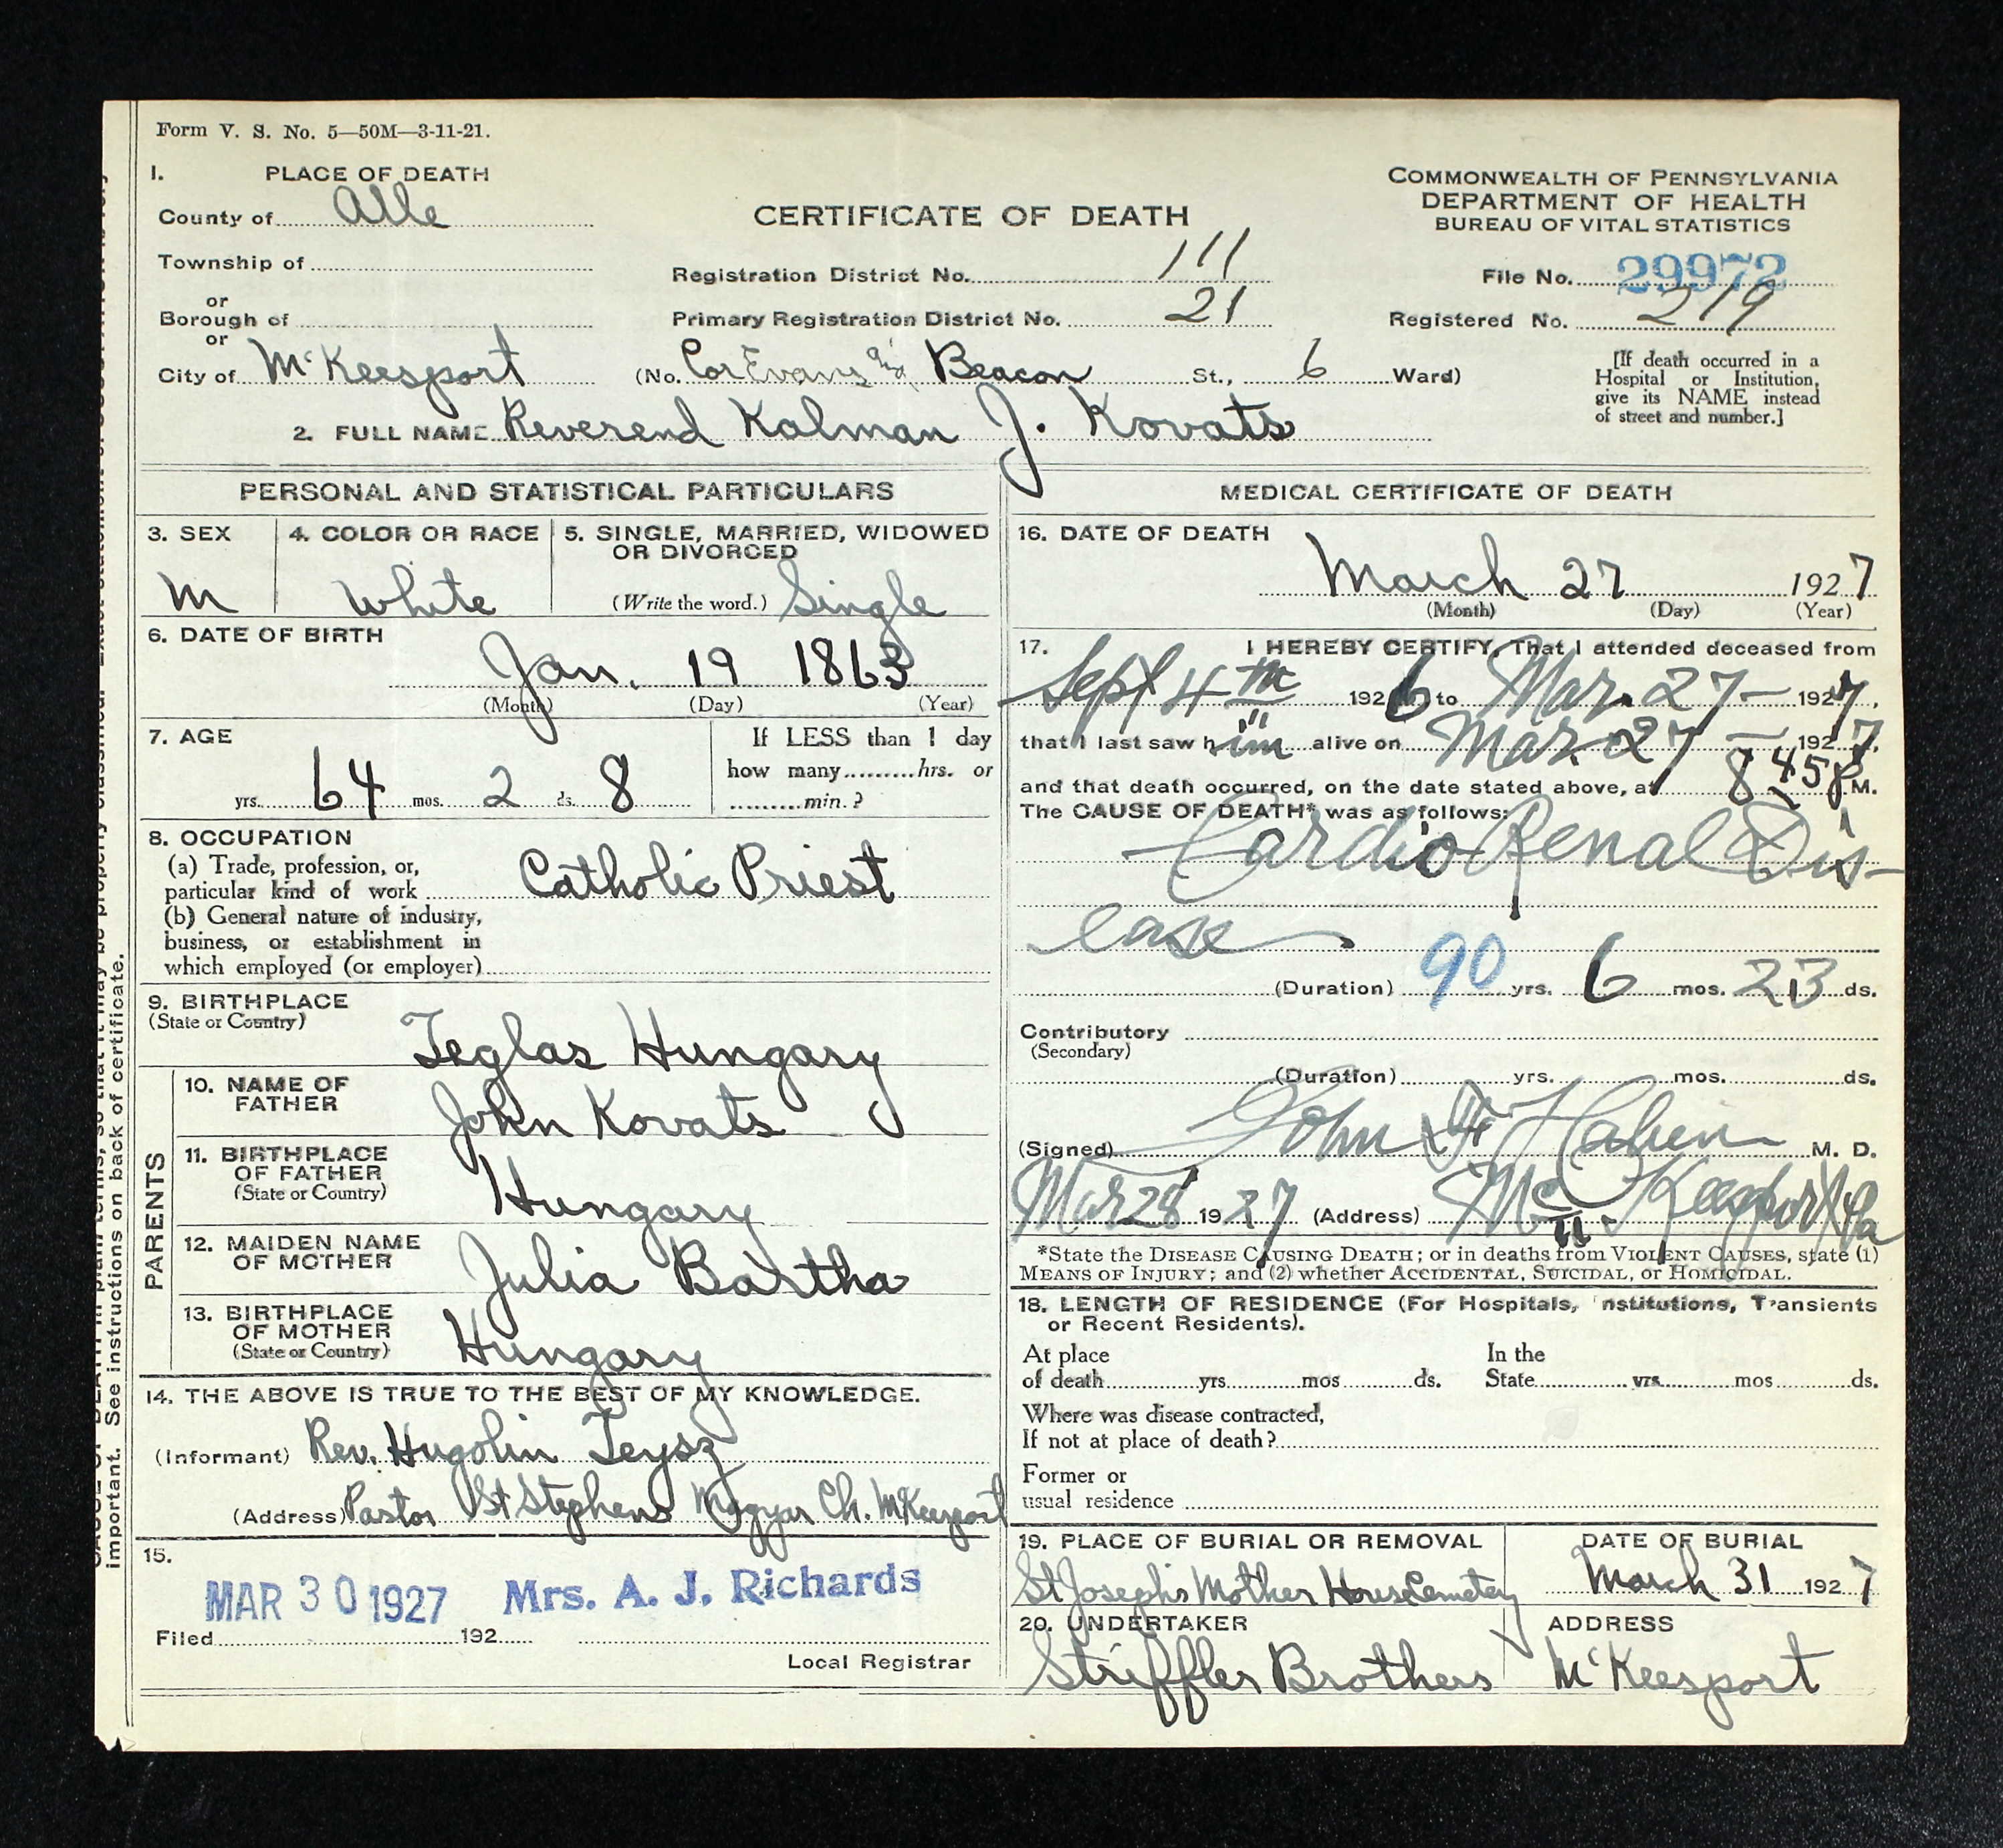 Form V. S. No. 5—50M—3-11-21.
1. PLACE OF DEATH
County of Alle
Township of
or
Borough of
or
City of McKeesport
CERTIFICATE OF DEATH
COMMONWEALTH OF PENNSYLVANIA
DEPARTMENT OF HEALTH
BUREAU OF VITAL STATISTICS
Registration District No. 111
File No. 29972
Primary Registration District No. 21
Registered No. 219
(No. Cor Evans and Beacon St., 6 Ward)
[If death occurred in a
Hospital or Institution,
give its NAME instead
of street and number.]
2. FULL NAME Reverend Kalman J. Kovats
PERSONAL AND STATISTICAL PARTICULARS
3. SEX
M
4. COLOR OR RACE
White
5. SINGLE, MARRIED, WIDOWED
OR DIVORCED
(Write the word.) Single
6. DATE OF BIRTH
Jan. 19 1863
(Month) (Day) (Year)
7. AGE
yrs. 64 mos. 2 ds. 8
If LESS than 1 day
how many hrs. or
min.?
8. OCCUPATION
(a) Trade, profession, or,
particular kind of work Catholic Priest
(b) General nature of industry,
business, or establishment in
which employed (or employer)
9. BIRTHPLACE
(State or Country)
Teglas Hungary
PARENTS
10. NAME OF
FATHER
John Kovats
11. BIRTHPLACE
OF FATHER
(State or Country)
Hungary
12. MAIDEN NAME
OF MOTHER
Julia Bartha
13. BIRTHPLACE
OF MOTHER
(State or Country)
Hungary
14. THE ABOVE IS TRUE TO THE BEST OF MY KNOWLEDGE.
(Informant) Rev. Hugolin Teysz
(Address) Pastor St Stephens Magyar Ch. McKeesport
15.
MAR 30 1927 Mrs. A. J. Richards
Filed 192
Local Registrar
MEDICAL CERTIFICATE OF DEATH
16. DATE OF DEATH
March 27 1927
(Month) (Day) (Year)
17. I HEREBY CERTIFY, That I attended deceased from
Sept 4th 1926 to Mar. 27 — 1927,
that I last saw him alive on Mar. 27 — 1927,
and that death occurred, on the date stated above, at 8 45 P M.
The CAUSE OF DEATH* was as follows:
Cardio Renal Dis-
ease
(Duration) 90 yrs. 6 mos. 23 ds.
Contributory
(Secondary)
(Duration) yrs. mos. ds.
(Signed) John M. D.
Mar 28 1927 (Address) McKeesport Pa
*State the DISEASE CAUSING DEATH; or in deaths from VIOLENT CAUSES, state (1)
MEANS OF INJURY; and (2) whether ACCIDENTAL, SUICIDAL, or HOMICIDAL.
18. LENGTH OF RESIDENCE (For Hospitals, Institutions, Transients
or Recent Residents).
At place
of death yrs mos ds.
In the
State yrs mos ds.
Where was disease contracted,
If not at place of death?
Former or
usual residence
19. PLACE OF BURIAL OR REMOVAL
St Josephs Mother House Cemetery
DATE OF BURIAL
March 31 1927
20. UNDERTAKER
Striffler Brothers
ADDRESS
McKeesport
important. See instructions on back of certificate.